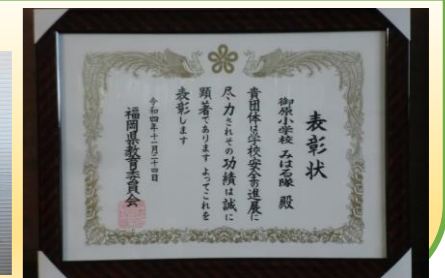 表彰状
御原小学校 みはる隊 殿
貴団体は学校安全の進展に
尽力されその功績は誠に
顕著であります よってこれを
表彰します
令和四年十一月二十四日
福岡県教育委員会